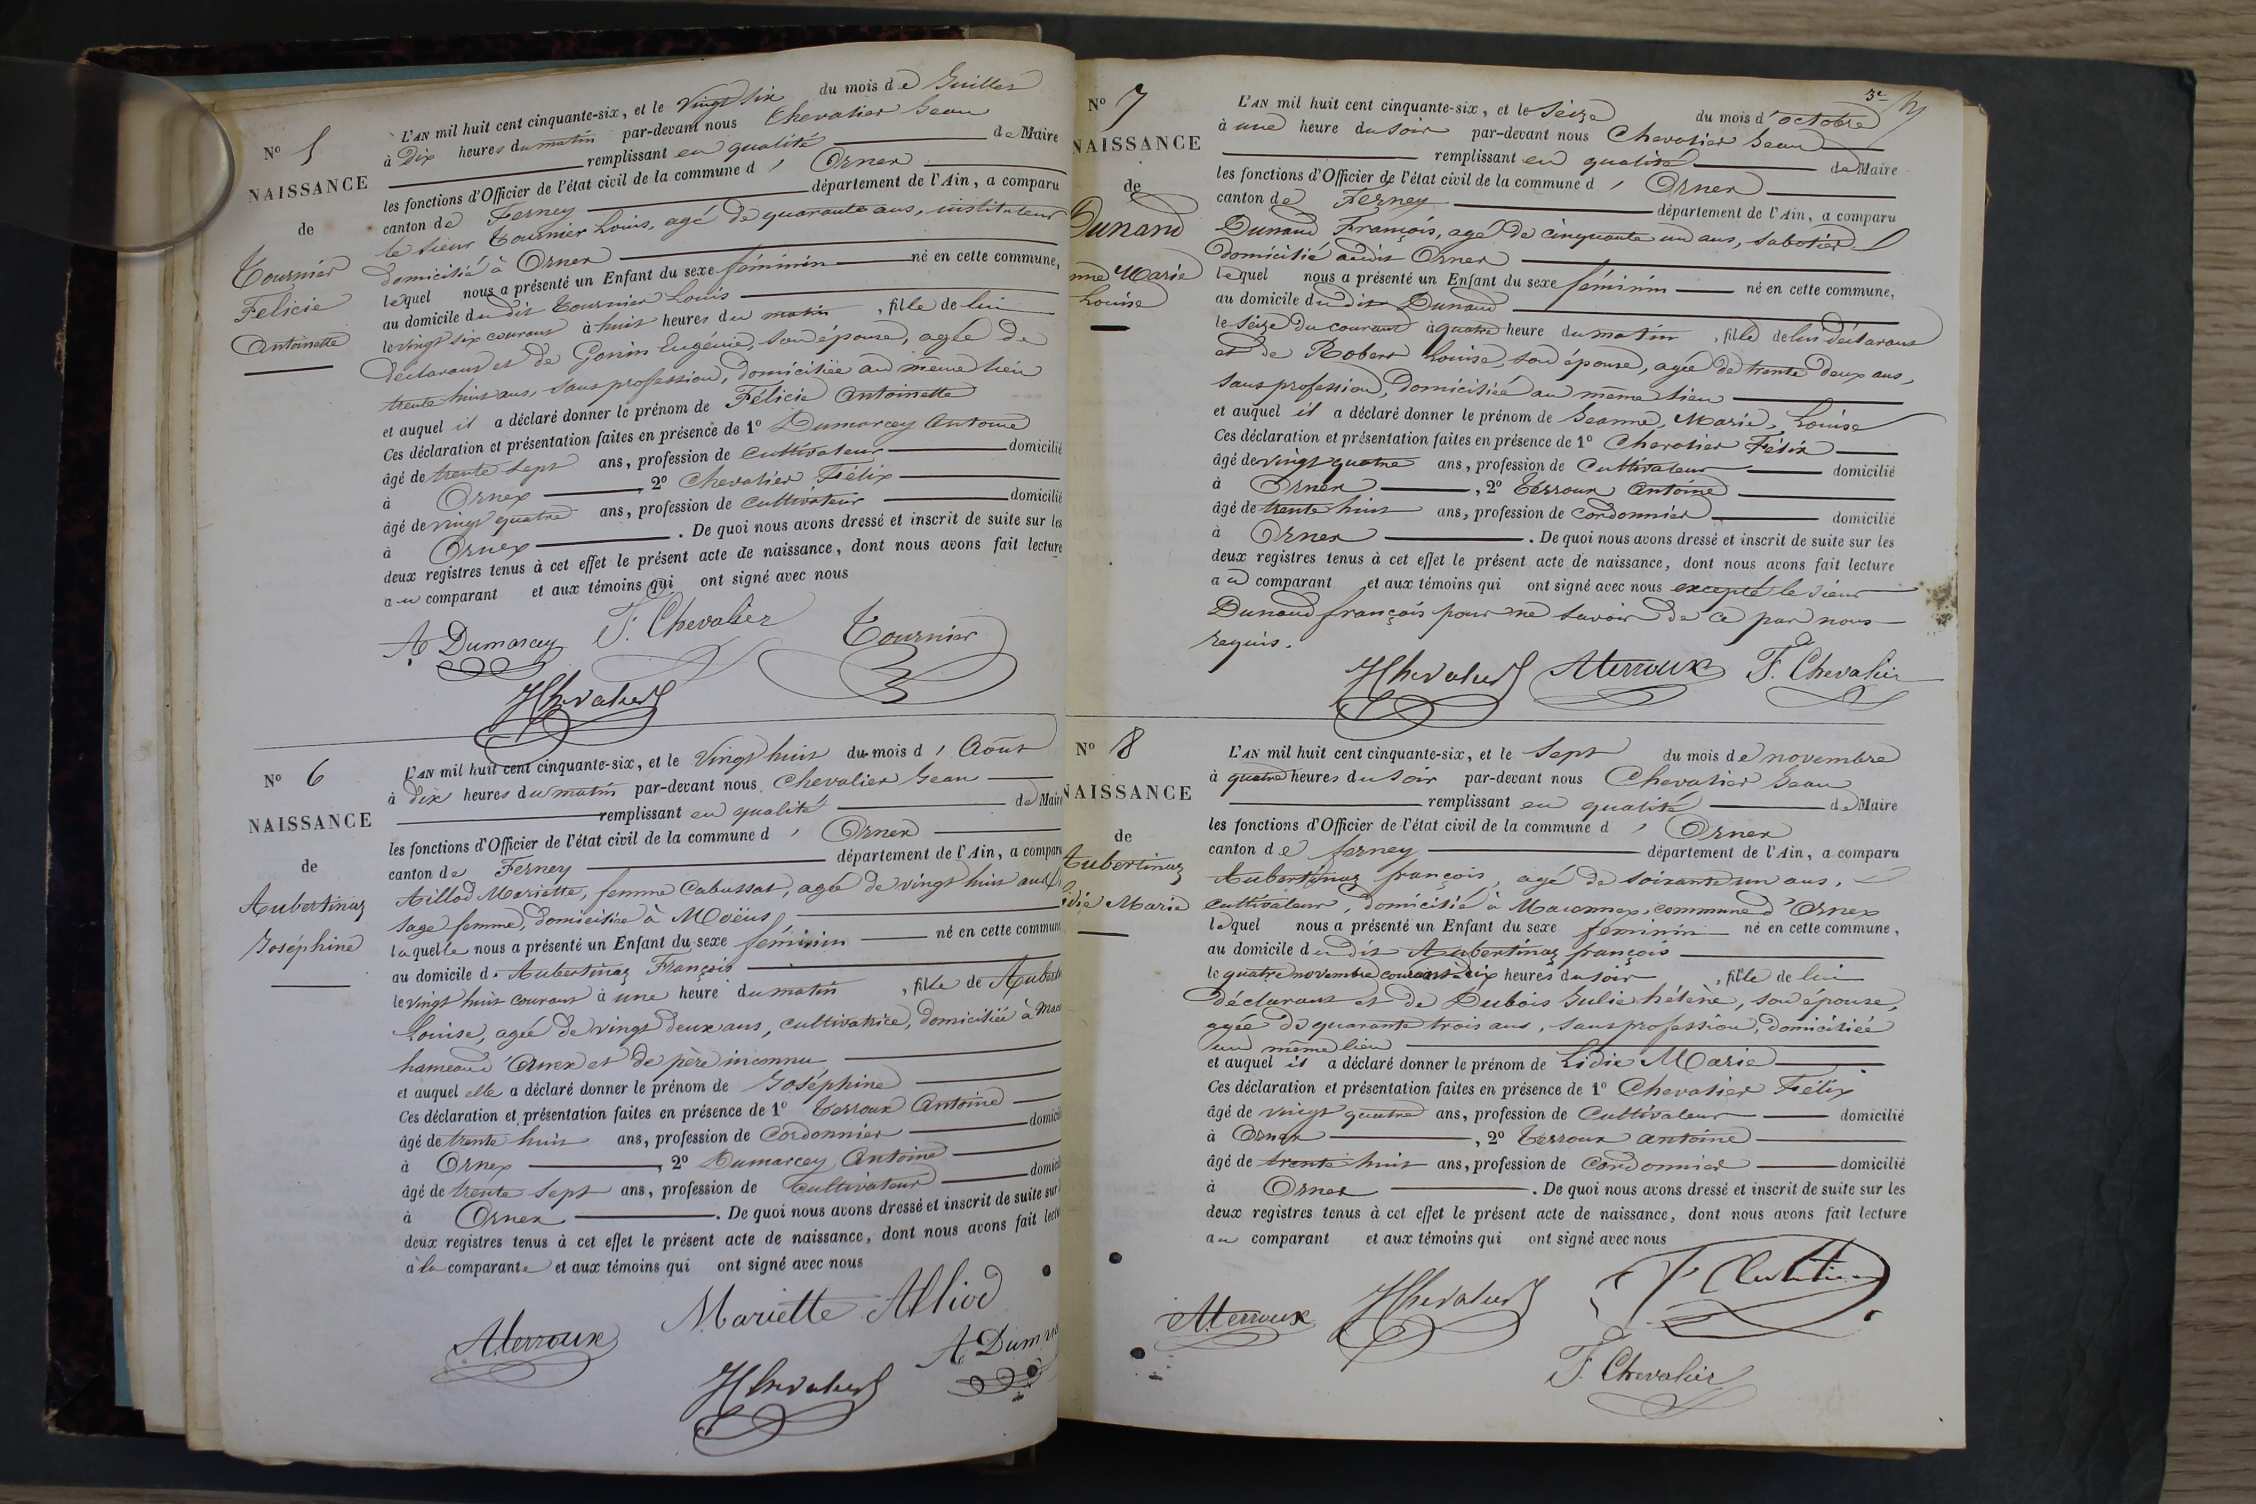 N° 5
NAISSANCE
de
Tournier
Felicie
Antoinette
L'AN mil huit cent cinquante-six, et le vingt six du mois de Juillet
à dix heures du matin par-devant nous Chevalier Jean
remplissant en qualité de Maire
les fonctions d'Officier de l'état civil de la commune d' Ornex
canton de Ferney département de l'Ain, a comparu
le sieur Tournier Louis, agé de quarante ans, instituteur
domicilié à Ornex
lequel nous a présenté un Enfant du sexe féminin né en cette commune,
au domicile du dit Tournier Louis
le vingt six courant à huit heures du matin, fille de lui
déclarant et de Gonin Eugénie, son épouse, agée de
trente huit ans, sans profession, domiciliée au même lieu
et auquel il a déclaré donner le prénom de Félicie Antoinette
Ces déclaration et présentation faites en présence de 1° Dumarcey Antoine
âgé de trente sept ans, profession de cultivateur domicilié
à Ornex, 2° Chevalier Félix
âgé de vingt quatre ans, profession de cultivateur domicilié
à Ornex. De quoi nous avons dressé et inscrit de suite sur les
deux registres tenus à cet effet le présent acte de naissance, dont nous avons fait lecture
au comparant et aux témoins qui ont signé avec nous
A Dumarcey F. Chevalier Tournier
JChevalier
N° 6
NAISSANCE
de
Aubertinaz
Joséphine
L'AN mil huit cent cinquante-six, et le vingt huit du mois d' Août
à dix heures du matin par-devant nous Chevalier Jean
remplissant en qualité de Maire
les fonctions d'Officier de l'état civil de la commune d' Ornex
canton de Ferney département de l'Ain, a comparu
Aillod Mariette, femme Cabussat, agée de vingt huit ans
sage femme, domiciliée à Moëns
laquelle nous a présenté un Enfant du sexe féminin né en cette commune
au domicile d. Aubertinaz François
le vingt huit courant à une heure du matin, fille de Aubert
Louise, agée de vingt deux ans, cultivatrice, domiciliée à Mac
hameau d'Ornex et de père inconnu
et auquel elle a déclaré donner le prénom de Joséphine
Ces déclaration et présentation faites en présence de 1° Terroux Antoine
âgé de trente huit ans, profession de Cordonnier domicilié
à Ornex, 2° Dumarcey Antoine
âgé de trente sept ans, profession de Cultivateur domicilié
à Ornex. De quoi nous avons dressé et inscrit de suite sur
deux registres tenus à cet effet le présent acte de naissance, dont nous avons fait lect
à la comparante et aux témoins qui ont signé avec nous
Mariette Alliod
ATerroux A Dum
JChevalier
3e
N° 7
NAISSANCE
de
Dunand
nne Marie
Louise
L'AN mil huit cent cinquante-six, et le seize du mois d'octobre
à une heure du soir par-devant nous Chevalier Jean
remplissant en qualité de Maire
les fonctions d'Officier de l'état civil de la commune d' Ornex
canton de Ferney département de l'Ain, a comparu
Dunand François, agé de cinquante un ans, sabotier
domicilié audit Ornex
lequel nous a présenté un Enfant du sexe féminin né en cette commune,
au domicile du dit Dunand
le seize du courant à quatre heure du matin, fille de lui déclarant
et de Robert Louise, son épouse, agée de trente deux ans,
sans profession, domiciliée au même lieu
et auquel il a déclaré donner le prénom de Jeanne, Marie, Louise
Ces déclaration et présentation faites en présence de 1° Chevalier Félix
âgé de vingt quatre ans, profession de Cultivateur domicilié
à Ornex, 2° Terroux Antoine
âgé de trente huit ans, profession de Cordonnier domicilié
à Ornex. De quoi nous avons dressé et inscrit de suite sur les
deux registres tenus à cet effet le présent acte de naissance, dont nous avons fait lecture
au comparant et aux témoins qui ont signé avec nous excepté le sieur
Dunand françois pour ne savoir de ce par nous
requis.
JChevalier ATerroux F. Chevalier
N° 8
NAISSANCE
de
Aubertinaz
idie Marie
L'AN mil huit cent cinquante-six, et le sept du mois de novembre
à quatre heures du soir par-devant nous Chevalier Jean
remplissant en qualité de Maire
les fonctions d'Officier de l'état civil de la commune d' Ornex
canton de ferney département de l'Ain, a comparu
Aubertinaz françois, agé de soixante un ans,
cultivateur, domicilié à Maconnex, commune d'Ornex
lequel nous a présenté un Enfant du sexe feminin né en cette commune,
au domicile du dit Aubertinaz françois
le quatre novembre courant à dix heures du soir, fille de lui
déclarant et de Dubois Julie hélène, son épouse,
agée de quarante trois ans, sans profession, domiciliée
au même lieu
et auquel il a déclaré donner le prénom de Lidie Marie
Ces déclaration et présentation faites en présence de 1° Chevalier Félix
âgé de vingt quatre ans, profession de Cultivateur domicilié
à Ornex, 2° Terroux antoine
âgé de trente huit ans, profession de Cordonnier domicilié
à Ornex. De quoi nous avons dressé et inscrit de suite sur les
deux registres tenus à cet effet le présent acte de naissance, dont nous avons fait lecture
au comparant et aux témoins qui ont signé avec nous
ATerroux JChevalier
F. Chevalier